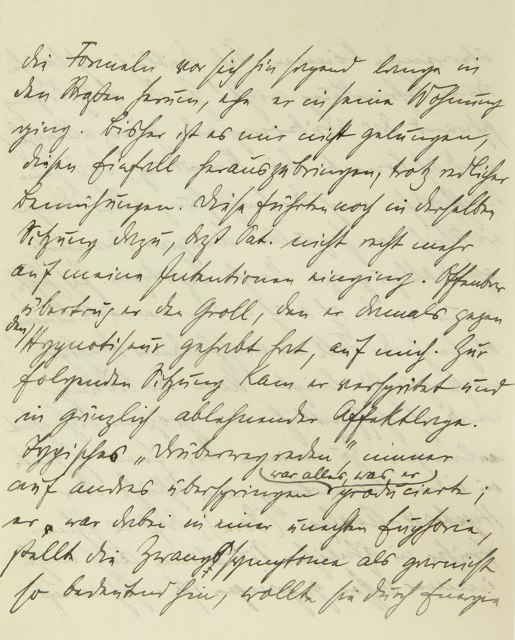 die Formeln vor sich hin sagend lange in
den Straßen herum, ehe er in seine Wohnung
ging. Bisher ist es mir nicht gelungen,
diesen Einfall herauszubringen, trotz redlicher
Bemühungen. Diese führten noch in derselben
Sitzung dazu, dass Pat. nicht recht mehr
auf meine Intentionen einging. Offenbar
übertrug er den Groll, den er damals gegen
den Hypnotiseur gehabt hat, auf mich. Zur
folgenden Sitzung kam er verspätet und
in gänzlich ablehnender Affektlage.
Typisches „Drüberwegreden“ immer
war alles, was er
auf andres überspringen producierte;
er war dabei in einer unechten Euphorie,
stellte die Zwangssymptome als garnicht
so bedeutend hin, wollte sie durch Energie